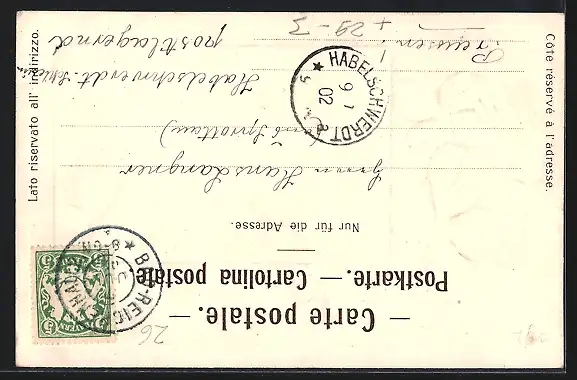 — Carte postale. —
Postkarte. — Cartolina postale.
Nur für die Adresse.
Côte réservé à l'adresse.
Lato riservato all' indirizzo.
Herrn Hans Langner
Habelschwerdt
postlagernd
Preussen
HABELSCHWERDT
9 1
02
BAD-REICHENHALL
BAYERN
5
26